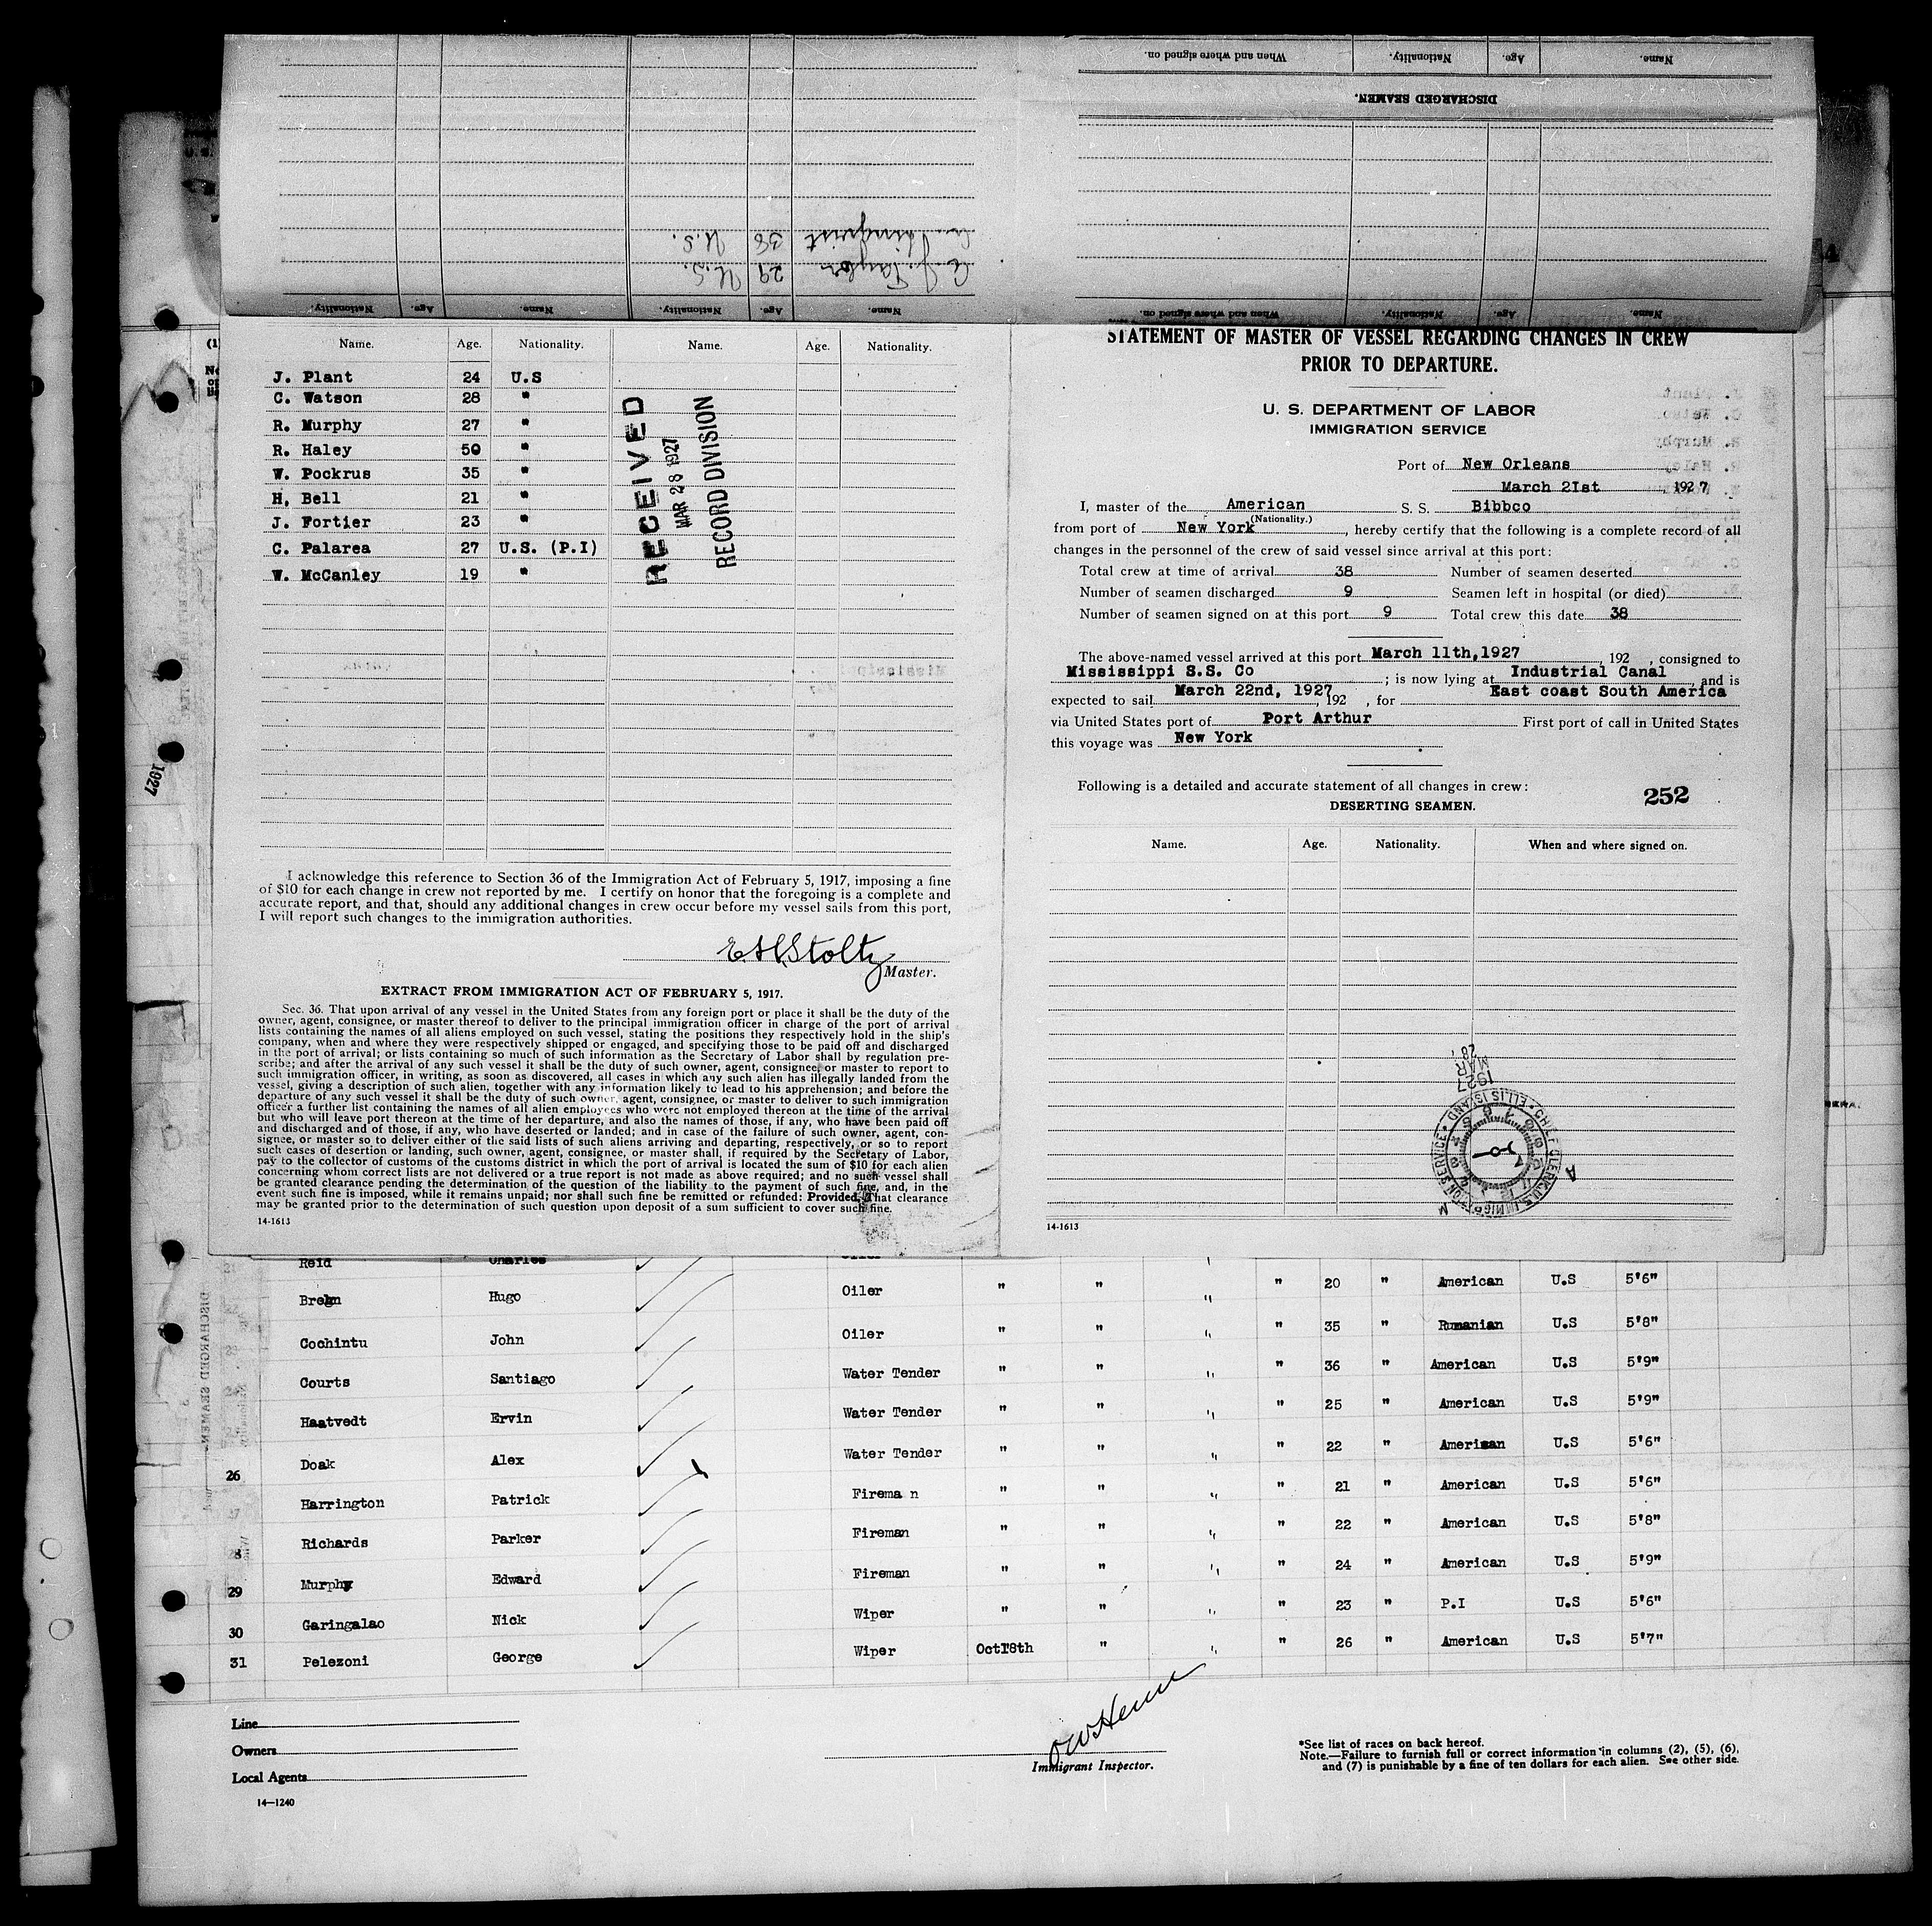 When and where signed on.
Nationality.
Age.
Name.
DISCHARGED SEAMEN.
36 U.S.
C. J. Taylor 29 U.S.
Name. Age. Nationality. Name. Age. Nationality.
Name. Age. Nationality. When and where signed on.
Name. Age. Nationality. Name. Age. Nationality.
J. Plant 24 U.S
C. Watson 28 "
R. Murphy 27 "
R. Haley 50 "
W. Pockrus 35 "
H, Bell 21 "
J. Fortier 23 "
C. Palarea 27 U.S. (P.I)
W. McCanley 19 "
RECEIVED
MAR 28 1927
RECORD DIVISION
I acknowledge this reference to Section 36 of the Immigration Act of February 5, 1917, imposing a fine
of $10 for each change in crew not reported by me. I certify on honor that the foregoing is a complete and
accurate report, and that, should any additional changes in crew occur before my vessel sails from this port,
I will report such changes to the immigration authorities.
E.H.Stoltz
Master.
EXTRACT FROM IMMIGRATION ACT OF FEBRUARY 5, 1917.
Sec. 36. That upon arrival of any vessel in the United States from any foreign port or place it shall be the duty of the
owner, agent, consignee, or master thereof to deliver to the principal immigration officer in charge of the port of arrival
lists containing the names of all aliens employed on such vessel, stating the positions they respectively hold in the ship's
company, when and where they were respectively shipped or engaged, and specifying those to be paid off and discharged
in the port of arrival; or lists containing so much of such information as the Secretary of Labor shall by regulation pre-
scribe; and after the arrival of any such vessel it shall be the duty of such owner, agent, consignee, or master to report to
such immigration officer, in writing, as soon as discovered, all cases in which any such alien has illegally landed from the
vessel, giving a description of such alien, together with any information likely to lead to his apprehension; and before the
departure of any such vessel it shall be the duty of such owner, agent, consignee, or master to deliver to such immigration
officer a further list containing the names of all alien employees who were not employed thereon at the time of the arrival
but who will leave port thereon at the time of her departure, and also the names of those, if any, who have been paid off
and discharged and of those, if any, who have deserted or landed; and in case of the failure of such owner, agent, con-
signee, or master so to deliver either of the said lists of such aliens arriving and departing, respectively, or so to report
such cases of desertion or landing, such owner, agent, consignee, or master shall, if required by the Secretary of Labor,
pay to the collector of customs of the customs district in which the port of arrival is located the sum of $10 for each alien
concerning whom correct lists are not delivered or a true report is not made as above required; and no such vessel shall
be granted clearance pending the determination of the question of the liability to the payment of such fine, and, in the
event such fine is imposed, while it remains unpaid; nor shall such fine be remitted or refunded: Provided, That clearance
may be granted prior to the determination of such question upon deposit of a sum sufficient to cover such fine.
14-1613
STATEMENT OF MASTER OF VESSEL REGARDING CHANGES IN CREW
PRIOR TO DEPARTURE.
U. S. DEPARTMENT OF LABOR
IMMIGRATION SERVICE
Port of New Orleans
March 2Ist, 1927
I, master of the American S. S. Bibbco
(Nationality.)
from port of New York, hereby certify that the following is a complete record of all
changes in the personnel of the crew of said vessel since arrival at this port:
Total crew at time of arrival 38 Number of seamen deserted
Number of seamen discharged 9 Seamen left in hospital (or died)
Number of seamen signed on at this port 9 Total crew this date 38
The above-named vessel arrived at this port March 11th,1927, 192 , consigned to
Mississippi S.S. Co ; is now lying at Industrial Canal, and is
expected to sail March 22nd, 1927, 192 , for East coast South America
via United States port of Port Arthur First port of call in United States
this voyage was New York
Following is a detailed and accurate statement of all changes in crew:
252
DESERTING SEAMEN.
Name. Age. Nationality. When and where signed on.
MAR 28
1927
CHIEF CLERK U.S. IMMIGRATION SERVICE · ELLIS ISLAND
14-1613
1927
Reid Charles Oiler
Bregn Hugo Oiler " " " " 20 " American U.S 5'6"
Cochintu John Oiler " " " " 35 " Rumanian U.S 5'8"
Courts Santiago Water Tender " " " " 36 " American U.S 5'9"
Haatvedt Ervin Water Tender " " " " 25 " American U.S 5'9"
26 Doak Alex Water Tender " " " " 22 " American U.S 5'6"
27 Harrington Patrick Firema n " " " " 21 " American U.S 5'6"
28 Richards Parker Fireman " " " " 22 " American U.S 5'8"
29 Murphy Edward Fireman " " " " 24 " American U.S 5'9"
30 Garingalao Nick Wiper " " " " 23 " P.I U.S 5'6"
31 Pelezoni George Wiper Oct18th " " " 26 " American U.S 5'7"
Line
Owners
Local Agents
14—1240
Immigrant Inspector.
*See list of races on back hereof.
Note.—Failure to furnish full or correct information in columns (2), (5), (6),
and (7) is punishable by a fine of ten dollars for each alien. See other side.